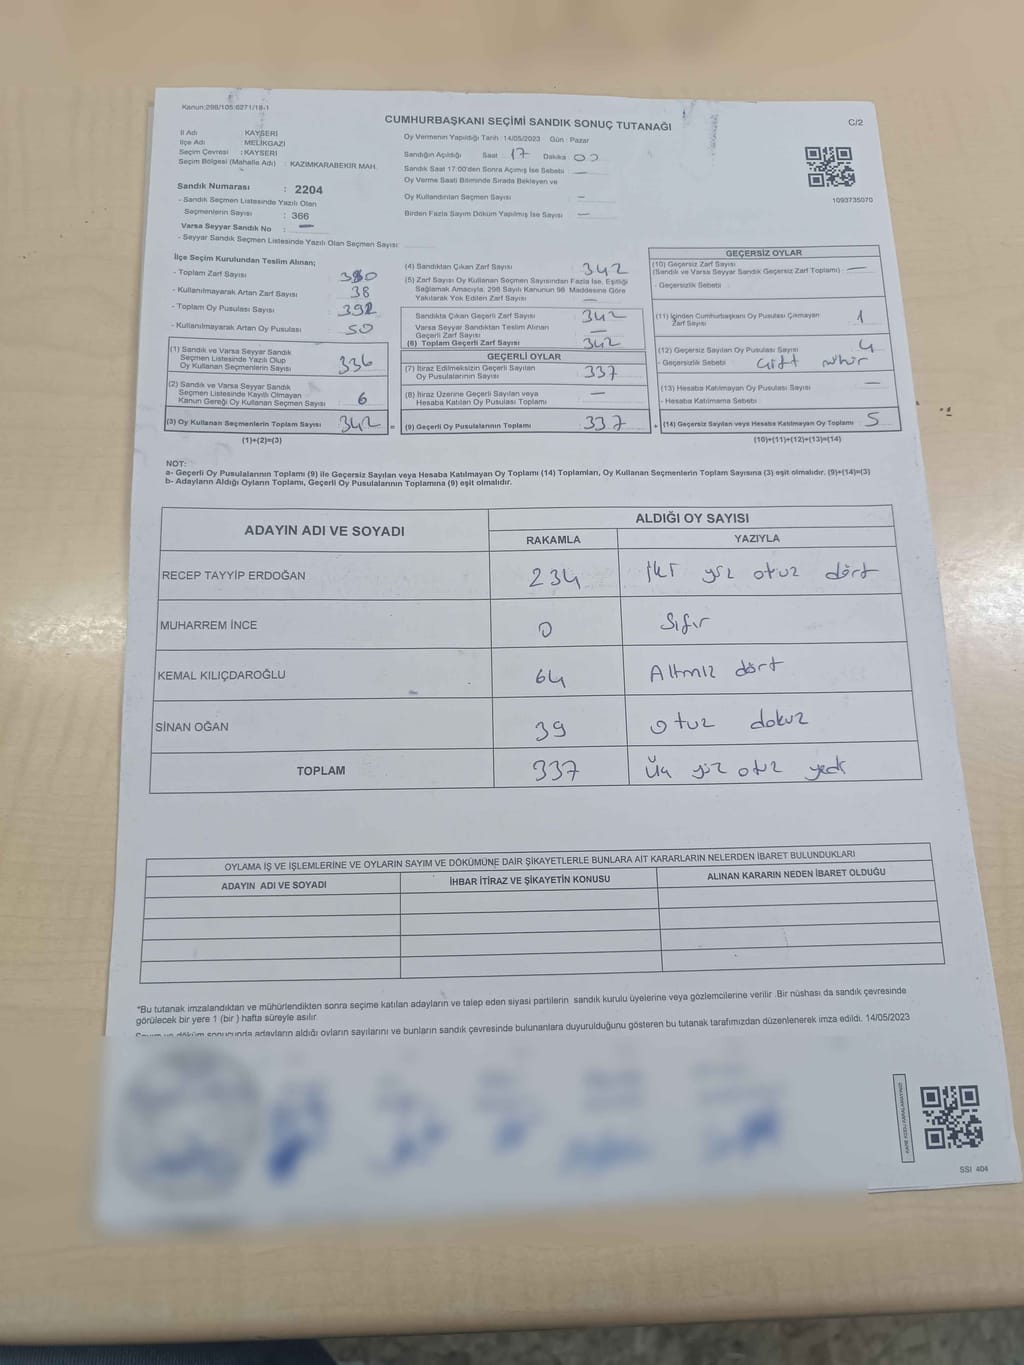 Kanun:298/105:6271/18-1
CUMHURBAŞKANI SEÇİMİ SANDIK SONUÇ TUTANAĞI
C/2
İl Adı : KAYSERİ
İlçe Adı : MELİKGAZİ
Seçim Çevresi : KAYSERİ
Seçim Bölgesi (Mahalle Adı) : KAZIMKARABEKİR MAH.
Sandık Numarası : 2204
- Sandık Seçmen Listesinde Yazılı Olan
Seçmenlerin Sayısı : 366
Varsa Seyyar Sandık No : —
- Seyyar Sandık Seçmen Listesinde Yazılı Olan Seçmen Sayısı:
Oy Vermenin Yapıldığı Tarih : 14/05/2023 Gün : Pazar
Sandığın Açıldığı Saat : 17 Dakika : 00
Sandık Saat 17:00'den Sonra Açımış İse Sebebi : —
Oy Verme Saati Bitiminde Sırada Bekleyen ve
Oy Kullandırılan Seçmen Sayısı : —
Birden Fazla Sayım Döküm Yapılmış İse Sayısı : —
1093735070
İlçe Seçim Kurulundan Teslim Alınan;
- Toplam Zarf Sayısı : 380
- Kullanılmayarak Artan Zarf Sayısı : 38
- Toplam Oy Pusulası Sayısı : 392
- Kullanılmayarak Artan Oy Pusulası : 50
(1) Sandık ve Varsa Seyyar Sandık
Seçmen Listesinde Yazılı Olup
Oy Kullanan Seçmenlerin Sayısı : 336
(2) Sandık ve Varsa Seyyar Sandık
Seçmen Listesinde Kayıtlı Olmayan
Kanun Gereği Oy Kullanan Seçmen Sayısı : 6
(3) Oy Kullanan Seçmenlerin Toplam Sayısı : 342 =
(1)+(2)=(3)
(4) Sandıktan Çıkan Zarf Sayısı : 342
(5) Zarf Sayısı Oy Kullanan Seçmen Sayısından Fazla İse, Eşitliği
Sağlamak Amacıyla, 298 Sayılı Kanunun 98. Maddesine Göre
Yakılarak Yok Edilen Zarf Sayısı : —
Sandıkta Çıkan Geçerli Zarf Sayısı : 342
Varsa Seyyar Sandıktan Teslim Alınan
Geçerli Zarf Sayısı : —
(6) Toplam Geçerli Zarf Sayısı : 342
GEÇERLİ OYLAR
(7) İtiraz Edilmeksizin Geçerli Sayılan
Oy Pusulalarının Sayısı : 337
(8) İtiraz Üzerine Geçerli Sayılan veya
Hesaba Katılan Oy Pusulası Toplamı : —
(9) Geçerli Oy Pusulalarının Toplamı : 337 +
GEÇERSİZ OYLAR
(10) Geçersiz Zarf Sayısı
(Sandık ve Varsa Seyyar Sandık Geçersiz Zarf Toplamı) : —
- Geçersizlik Sebebi :
(11) İçinden Cumhurbaşkanı Oy Pusulası Çıkmayan
Zarf Sayısı : 1
(12) Geçersiz Sayılan Oy Pusulası Sayısı : 4
- Geçersizlik Sebebi : Çift mühür
(13) Hesaba Katılmayan Oy Pusulası Sayısı : —
- Hesaba Katılmama Sebebi :
(14) Geçersiz Sayılan veya Hesaba Katılmayan Oy Toplamı : 5
(10)+(11)+(12)+(13)=(14)
NOT:
a- Geçerli Oy Pusulalarının Toplamı (9) ile Geçersiz Sayılan veya Hesaba Katılmayan Oy Toplamı (14) Toplamları, Oy Kullanan Seçmenlerin Toplam Sayısına (3) eşit olmalıdır. (9)+(14)=(3)
b- Adayların Aldığı Oyların Toplamı, Geçerli Oy Pusulalarının Toplamına (9) eşit olmalıdır.
ADAYIN ADI VE SOYADI
ALDIĞI OY SAYISI
RAKAMLA YAZIYLA
RECEP TAYYİP ERDOĞAN 234 İki yüz otuz dört
MUHARREM İNCE 0 Sıfır
KEMAL KILIÇDAROĞLU 64 Altmız dört
SİNAN OĞAN 39 otuz dokuz
TOPLAM 337 Üç yüz otuz yedi
OYLAMA İŞ VE İŞLEMLERİNE VE OYLARIN SAYIM VE DÖKÜMÜNE DAİR ŞİKAYETLERLE BUNLARA AİT KARARLARIN NELERDEN İBARET BULUNDUKLARI
ADAYIN ADI VE SOYADI İHBAR İTİRAZ VE ŞİKAYETİN KONUSU ALINAN KARARIN NEDEN İBARET OLDUĞU
*Bu tutanak imzalandıktan ve mühürlendikten sonra seçime katılan adayların ve talep eden siyasi partilerin sandık kurulu üyelerine veya gözlemcilerine verilir .Bir nüshası da sandık çevresinde
görülecek bir yere 1 (bir ) hafta süreyle asılır.
Sayım ve döküm sonucunda adayların aldığı oyların sayılarını ve bunların sandık çevresinde bulunanlara duyurulduğunu gösteren bu tutanak tarafımızdan düzenlenerek imza edildi. 14/05/2023
KARE KODU KARALAMAYINIZ
SSI 404